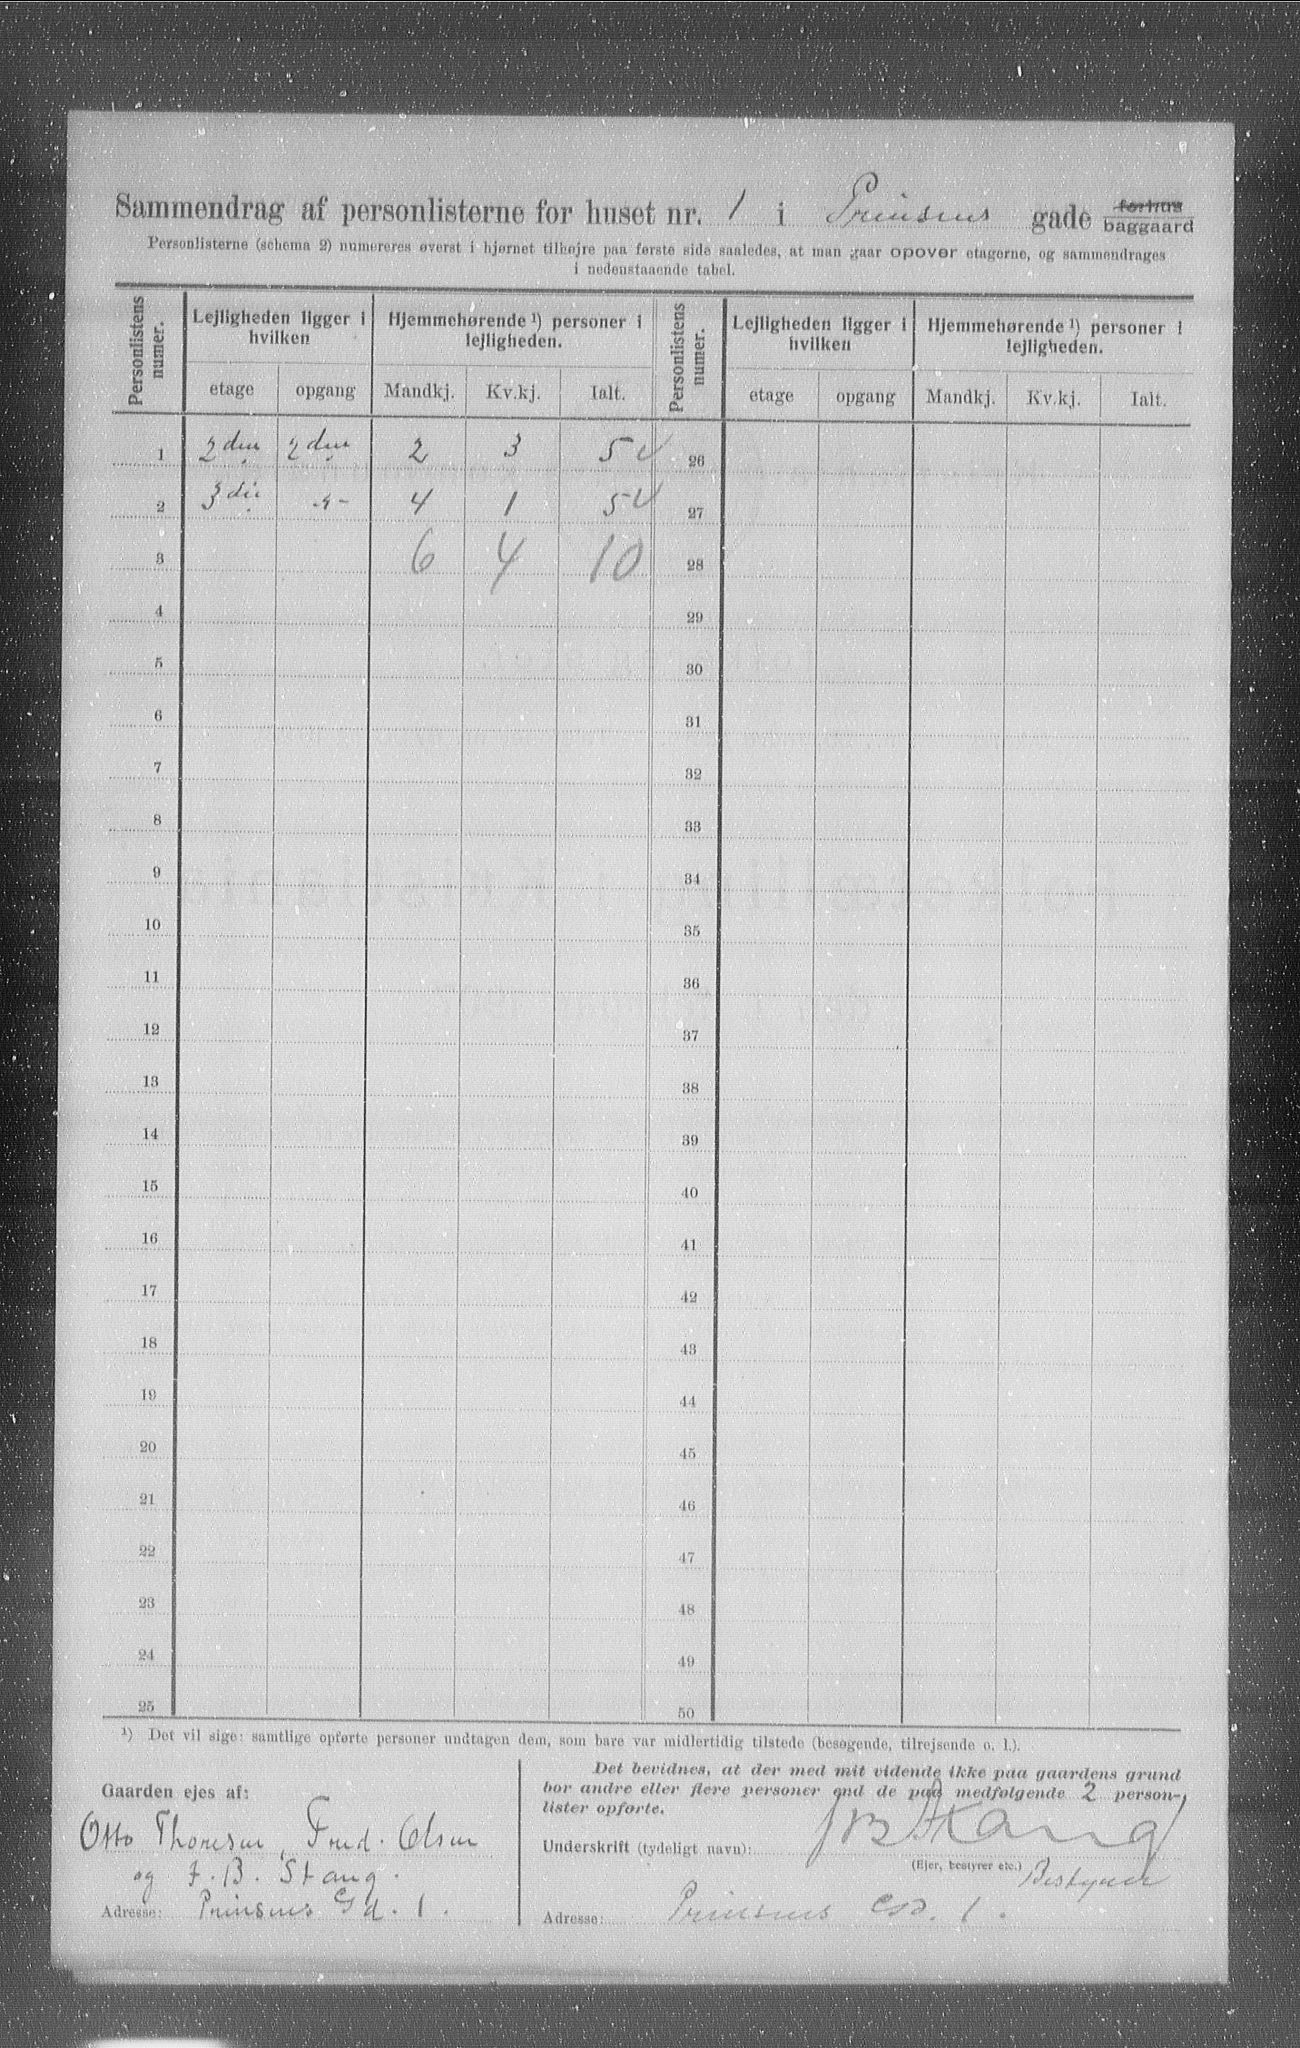 Sammendrag af personlisterne for huset nr. 1 i Prinsens gade forhus baggaard
Personlisterne (schema 2) numereres øverst i hjørnet tilhøjre paa første side saaledes, at man gaar opover etagerne, og sammendrages
i nedenstaaende tabel.
Personlistens numer. Lejligheden ligger i hvilken Hjemmehørende ¹) personer i lejligheden. Personlistens numer. Lejligheden ligger i hvilken Hjemmehørende ¹) personer i lejligheden.
etage opgang Mandkj. Kv.kj. Ialt. etage opgang Mandkj. Kv.kj. Ialt.
1 2den 2den 2 3 5 26
2 3die 4 1 5 27
3 6 4 10 28
4 29
5 30
6 31
7 32
8 33
9 34
10 35
11 36
12 37
13 38
14 39
15 40
16 41
17 42
18 43
19 44
20 45
21 46
22 47
23 48
24 49
25 50
¹) Det vil sige: samtlige opførte personer undtagen dem, som bare var midlertidig tilstede (besøgende, tilrejsende o. l.).
Gaarden ejes af:
Otto Thoresen, Fred. Olsen
og F. B. Stang.
Adresse: Prinsens Gd. 1.
Det bevidnes, at der med mit vidende ikke paa gaardens grund
bor andre eller flere personer end de paa medfølgende 2 person-
lister opførte.
Underskrift (tydeligt navn): FB Stang
(Ejer, bestyrer etc.) Bestyrer
Adresse: Prinsens Gd. 1.